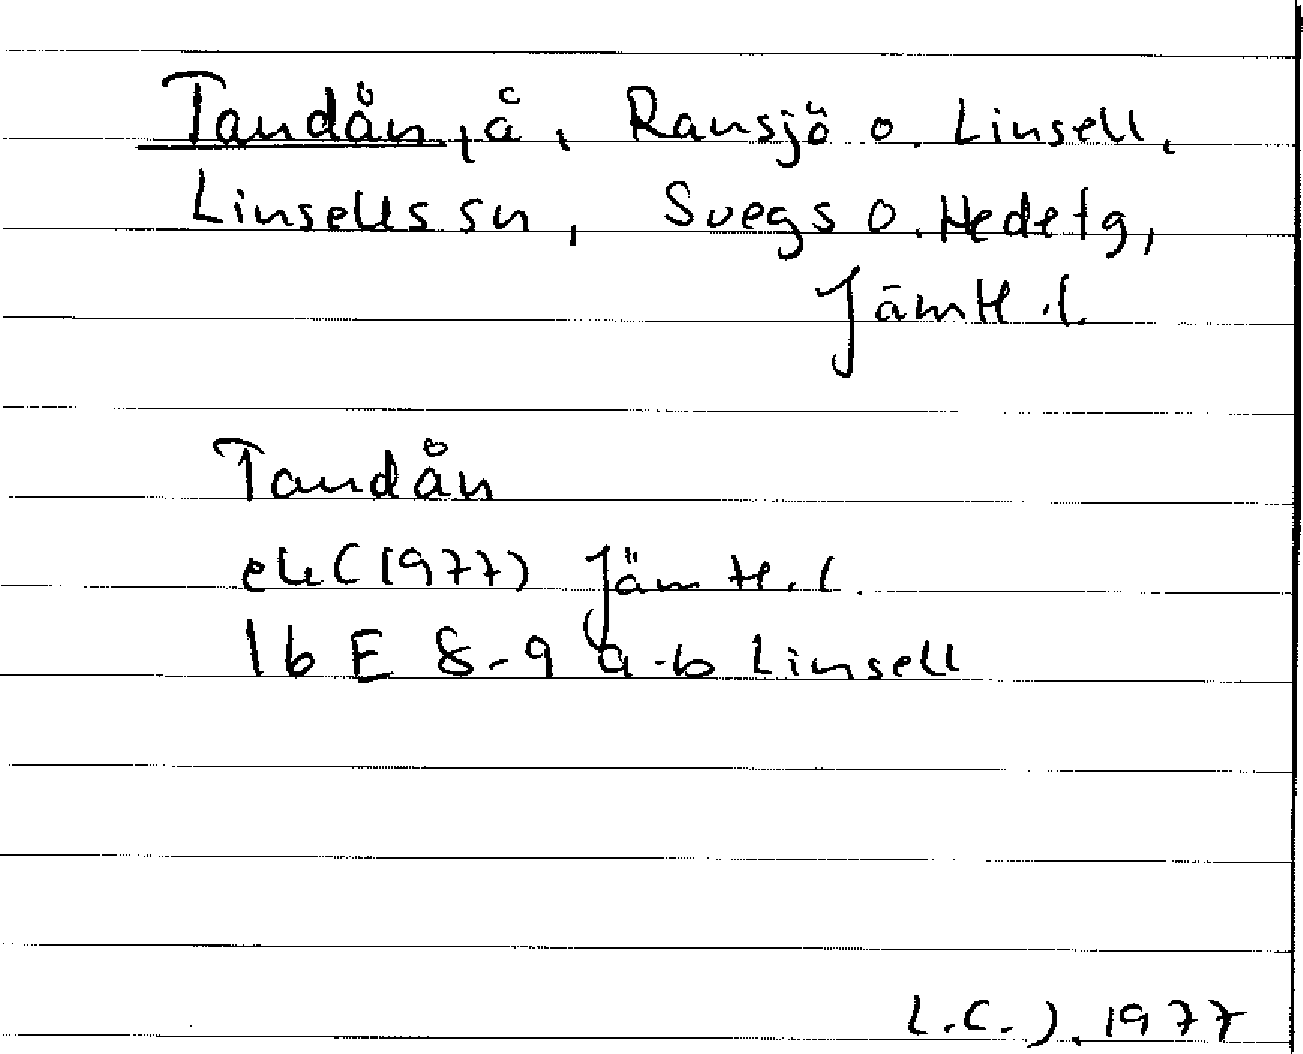 Tandån, å, Ransjö o. Linsell,
Linsells sn, Svegs o. Hede tg,
Jämtl. l.
Tandån
ek (1977) Jämtl. l.
16 E 8-9 a-b Linsell
L.C.J. 1977